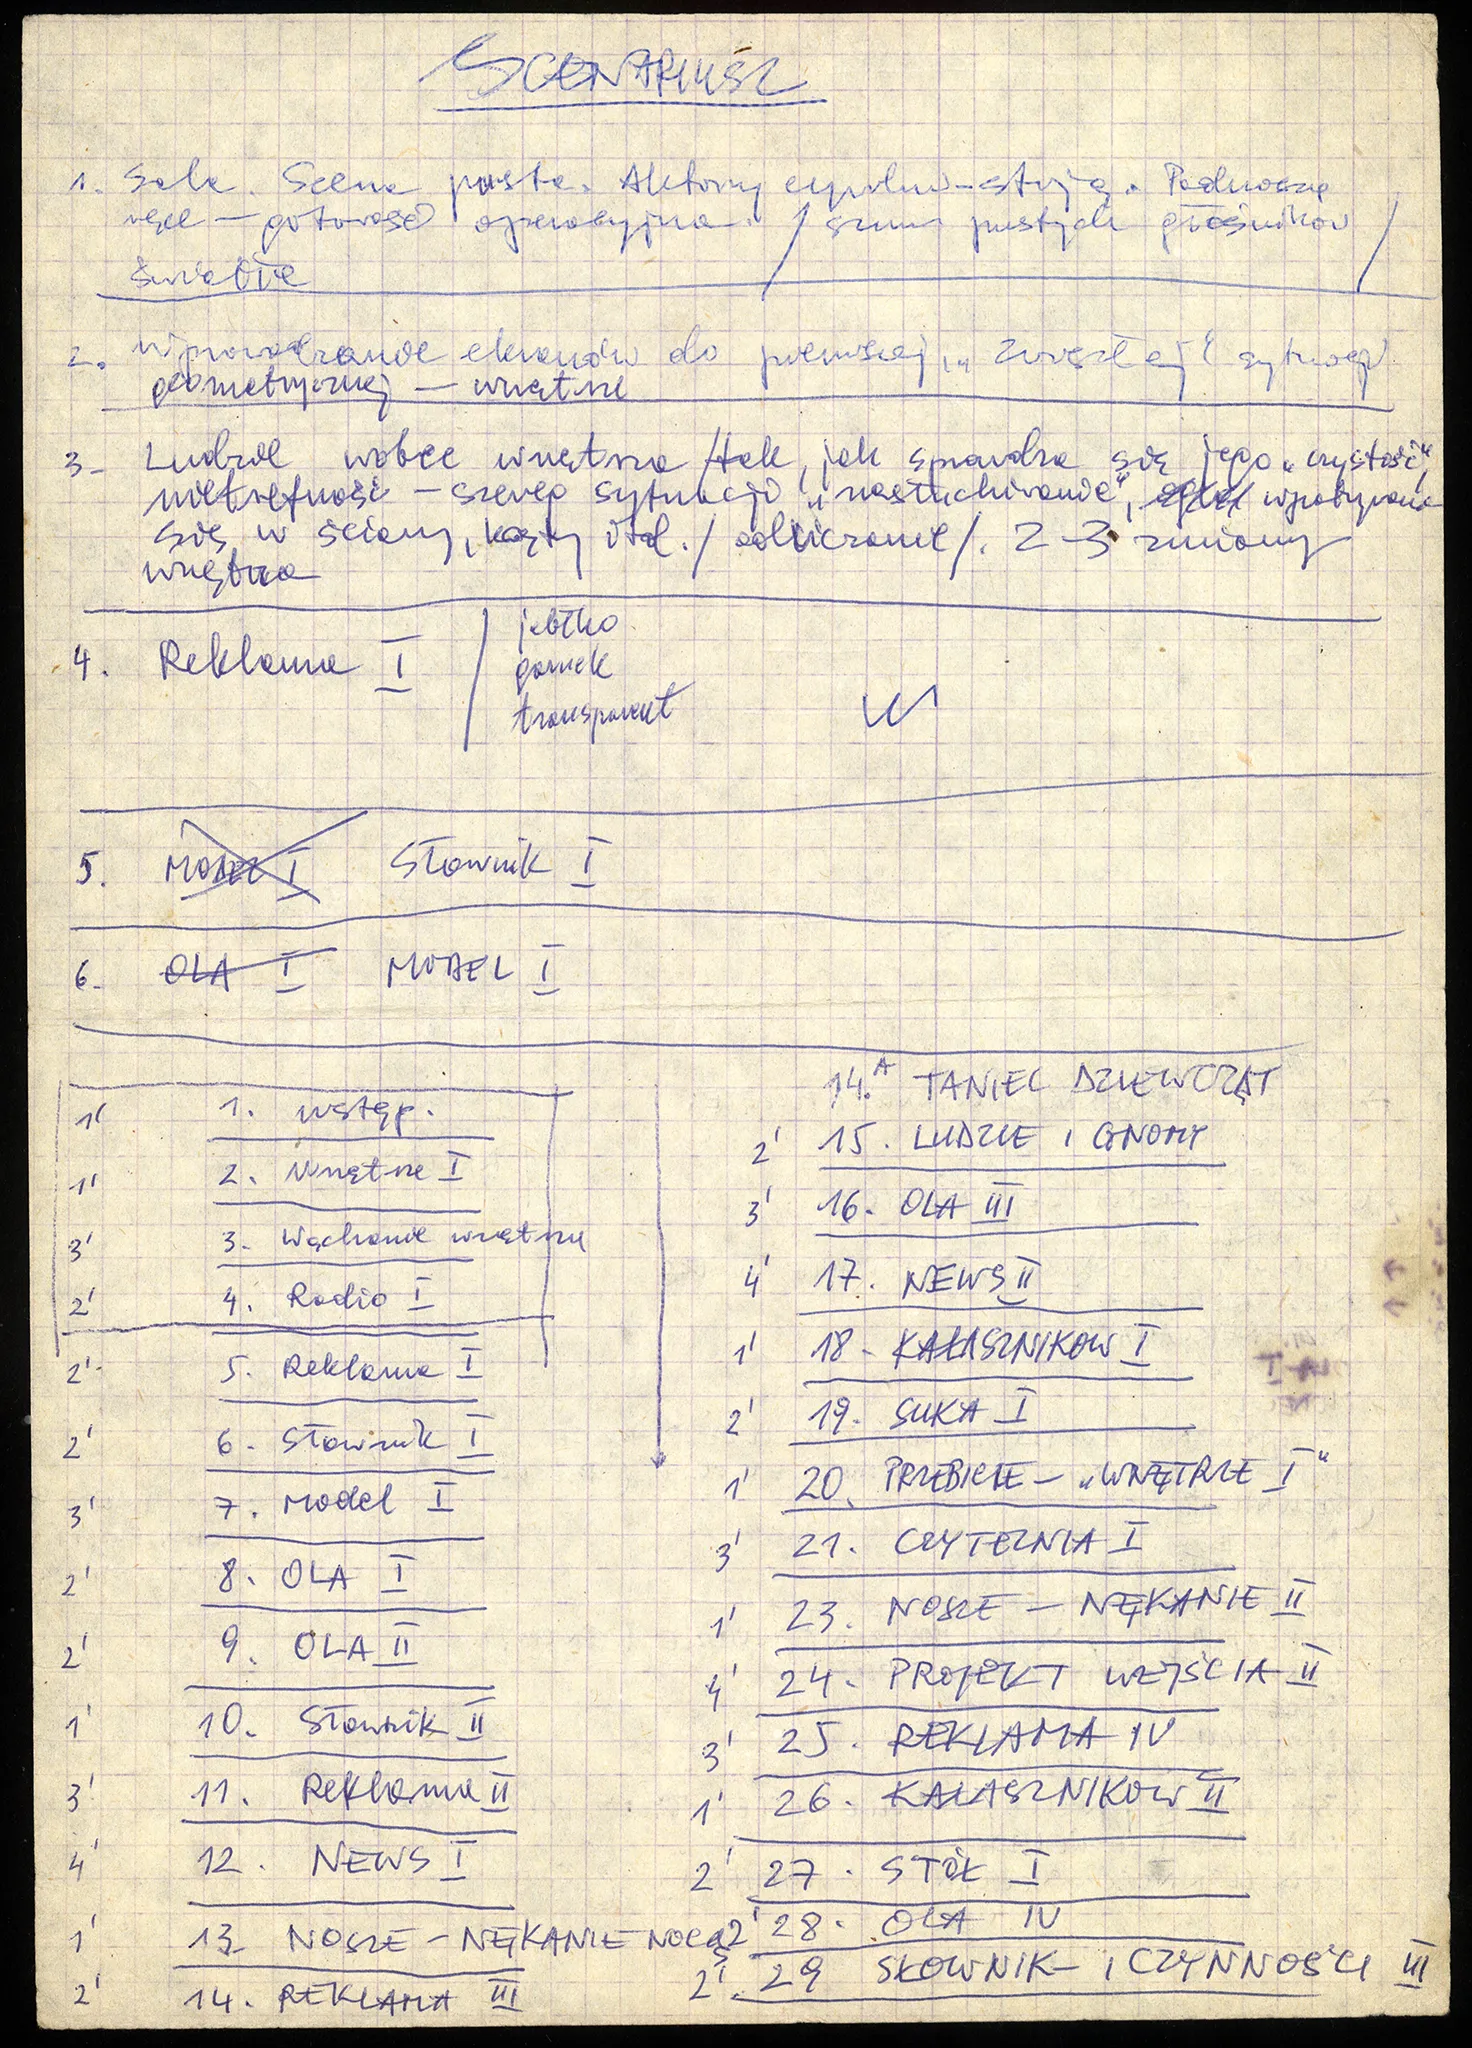 SCENARIUSZ
1. Sala. Scena pusta. Aktorzy cywilni – stoją. Podnoszą
ręce – gotowość operacyjna. / szum pustych głośników /
światło
2. Wprowadzanie ekranów do pierwszej, „zwartej" sytuacji
geometrycznej – wnętrze
3- Ludzie wobec wnętrza /tak, jak sprawdza się jego „czystość",
nietrefność – szereg sytuacji „nasłuchiwania",
się w ściany, kąty itd. / odliczanie /. 2-3 zmiany
wnętrza
4. Reklama I / jabłko
garnek
transparent
5. MODEL I Słownik I
6. OLA I MODEL I
1' 1. Wstęp.
1' 2. Wnętrze I
3' 3. Wąchanie wnętrza
2' 4. Radio I
2' 5. Reklama I
2' 6. Słownik I
3' 7. Model I
2' 8. OLA I
2' 9. OLA II
1' 10. Słownik II
3' 11. Reklama II
4' 12. NEWS I
1' 13. NOSZE – NĘKANIE NOCĄ
2' 14. REKLAMA III
14.A TANIEC DZIEWCZĄT
2' 15. LUDZIE I GNOMY
3' 16. OLA III
4' 17. NEWS II
1' 18. KAŁASZNIKOW I
2' 19. SUKA I
1' 20. PRZEBICIE – „WNĘTRZE I"
3' 21. CZYTELNIA I
1' 23. NOSZE – NĘKANIE II
4' 24. PROJEKT WEJŚCIA II
3' 25. REKLAMA IV
1' 26. KAŁASZNIKOW II
2' 27. STÓŁ I
2' 28. OLA IV
2' 29 SŁOWNIK – I CZYNNOŚCI III